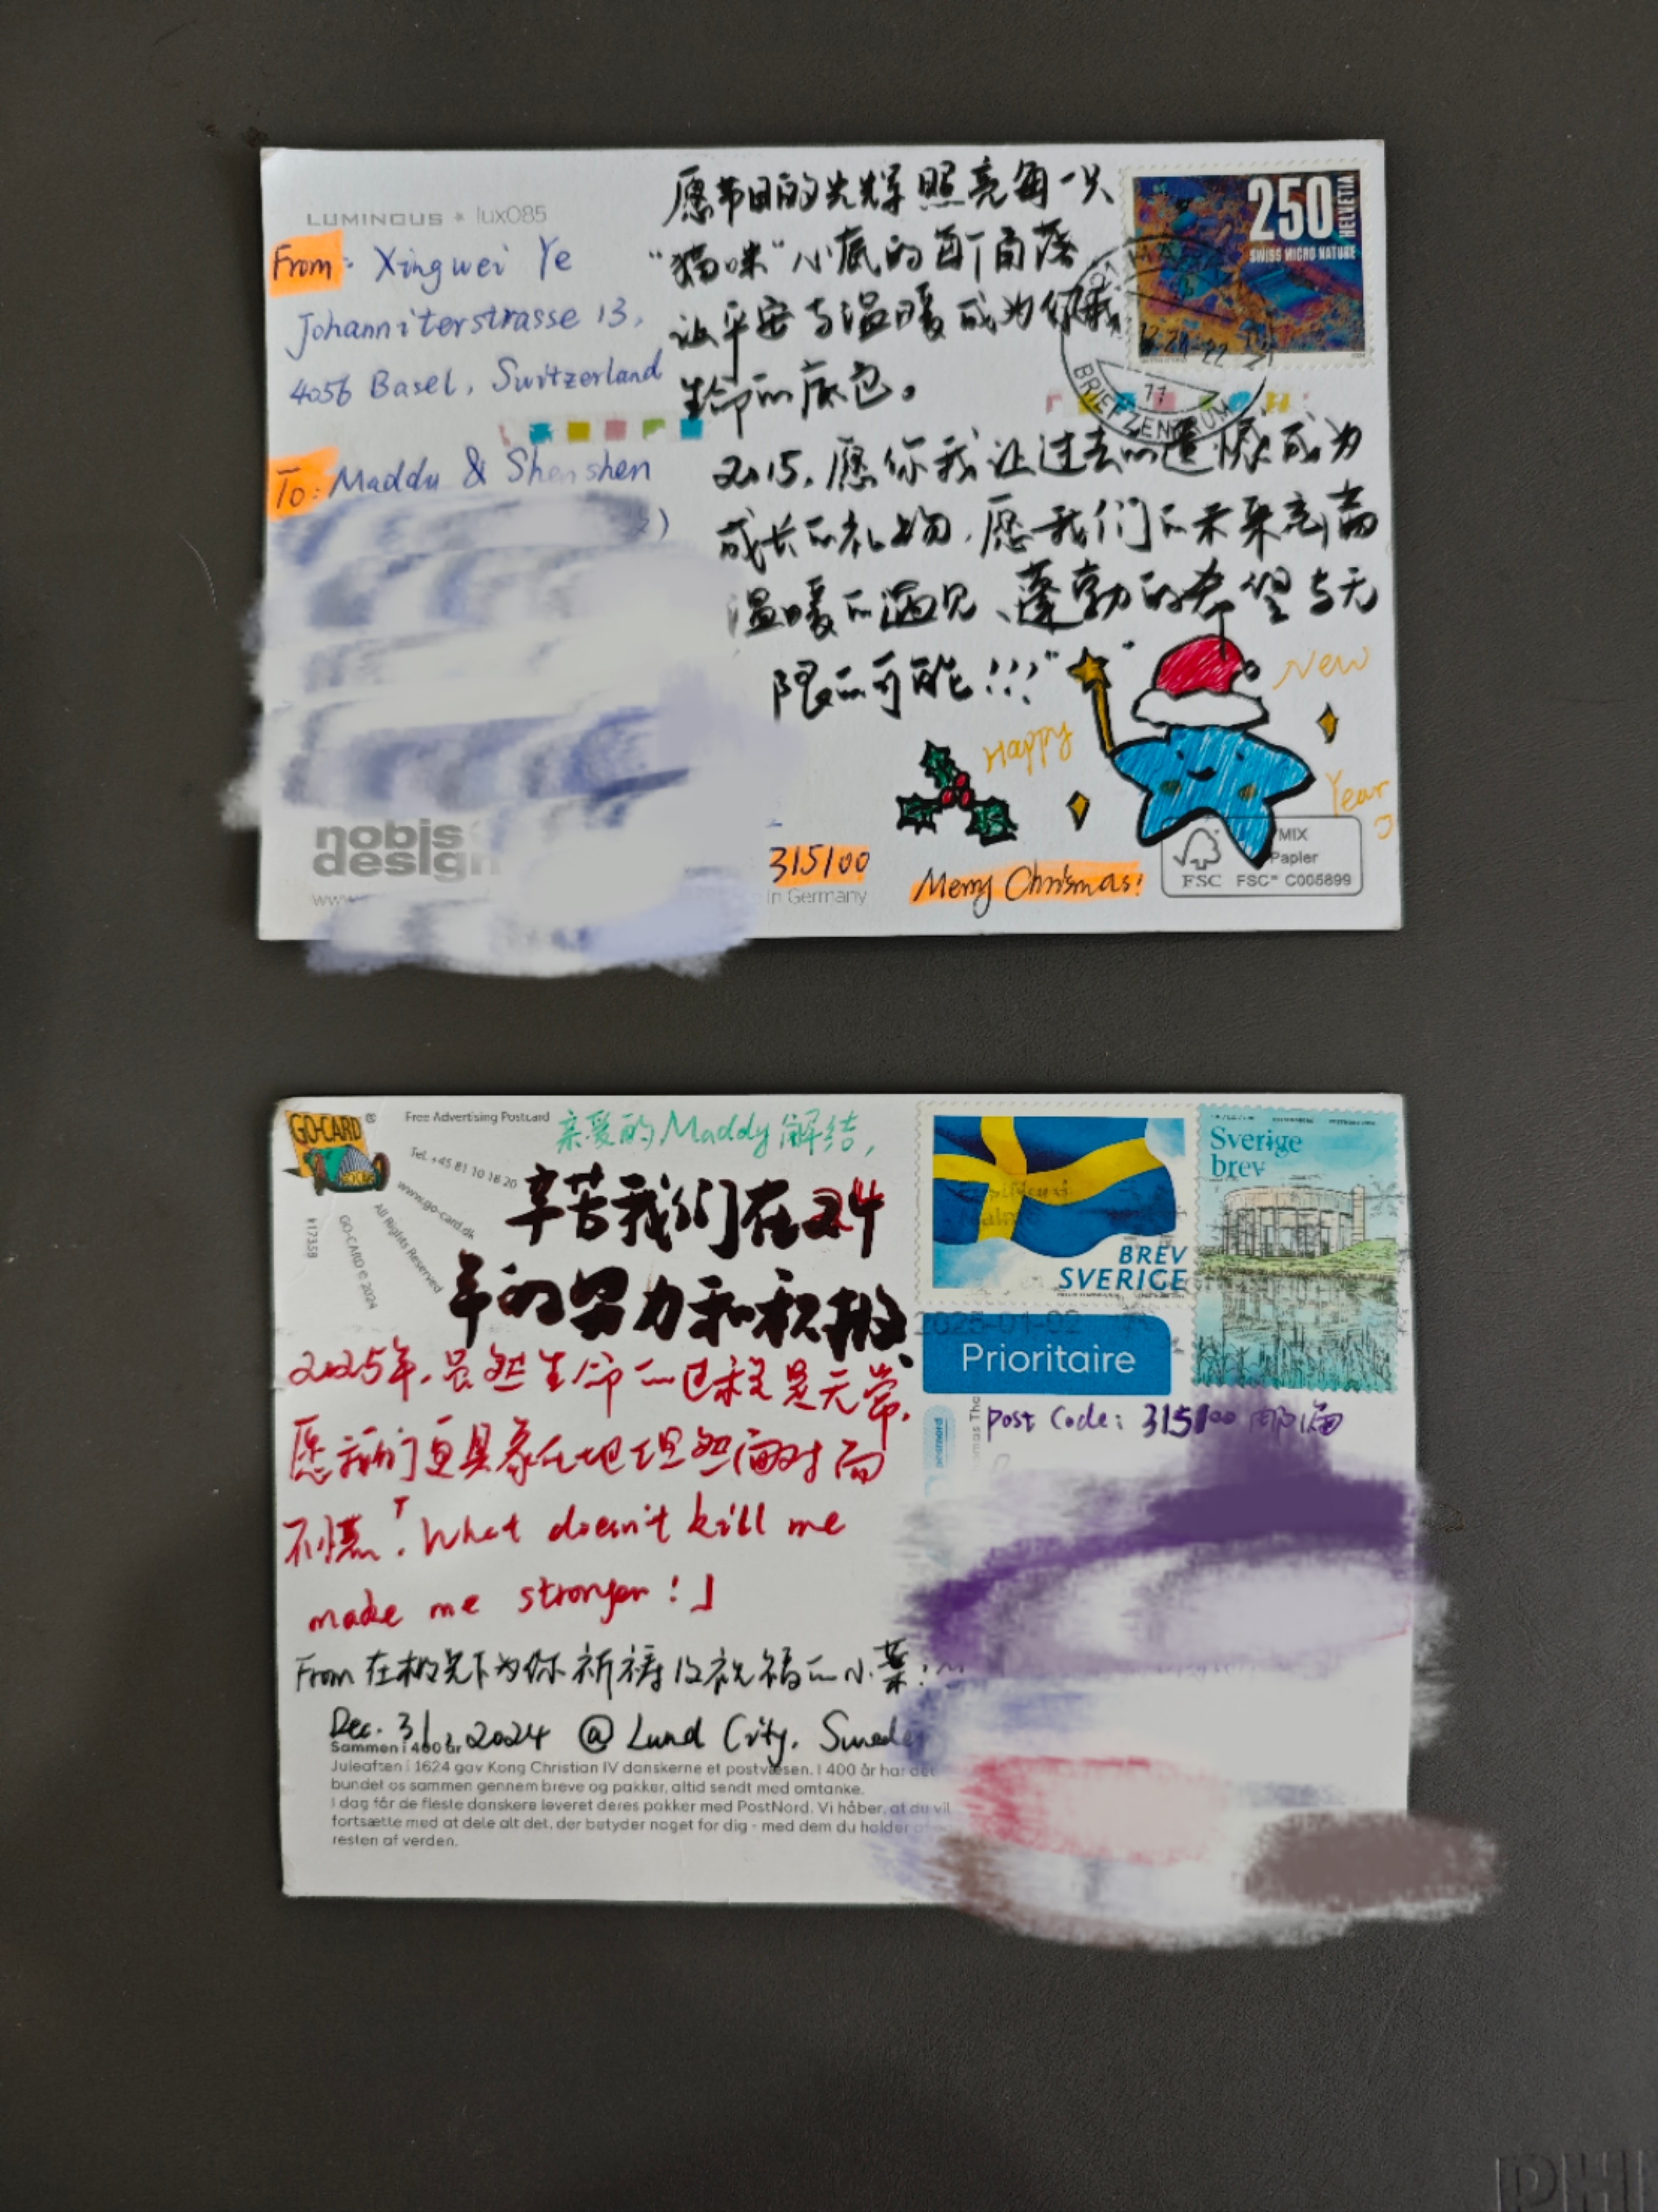 LUMINOUS * lux085
From: Xingwei Ye
Johanniterstrasse 13,
4056 Basel, Switzerland
To: Maddu & Shenshen
nobis
design
www
315100
in Germany
愿节日的光辉照亮每一只
“猫咪”小底的每个角落
让平安与温暖成为你我
生命的底色。
2015,愿你我让过去的遗憾成为
成长的礼物,愿我们的未来充满
温暖的遇见、蓬勃的希望与无
限的可能!!!
Happy
New
Year
Merry Chrismas!
250
HELVETIA
SWISS MICRO NATURE
BRIEFZENTRUM
MIX
Papier
FSC FSC® C005899
GO-CARD®
Free Advertising Postcard
Tel. +45 81 10 16 20
www.go-card.dk
All Rights Reserved
GO-CARD © 2024
亲爱的Maddy解结,
辛苦我们在24
年的努力和积极、
2025年,虽然生命的过程是无常,
愿我们更具象化地坦然面对而
不慌.「What doesn't kill me
make me stronger!」
From 在极光下为你祈祷及祝福的小葉:
Dec. 31, 2024 @ Lund City, Sweden
Sammen i 400 år
Juleaften i 1624 gav Kong Christian IV danskerne et postvæsen. I 400 år har det
bundet os sammen gennem breve og pakker, altid sendt med omtanke.
I dag får de fleste danskere leveret deres pakker med PostNord. Vi håber, at du vil
fortsætte med at dele alt det, der betyder noget for dig - med dem du holder
resten af verden.
BREV
SVERIGE
Sverige
brev
2025-01-02
Prioritaire
postnord
Post Code: 315100 邮编